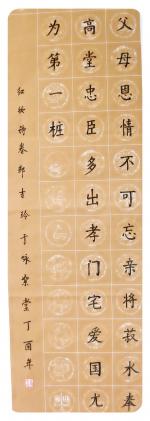 父母恩情不可忘亲将菽水奉
高堂忠臣多出孝门宅爱国尤
为第一桩
红妆诗卷郑吉玲于咏絮堂丁酉年